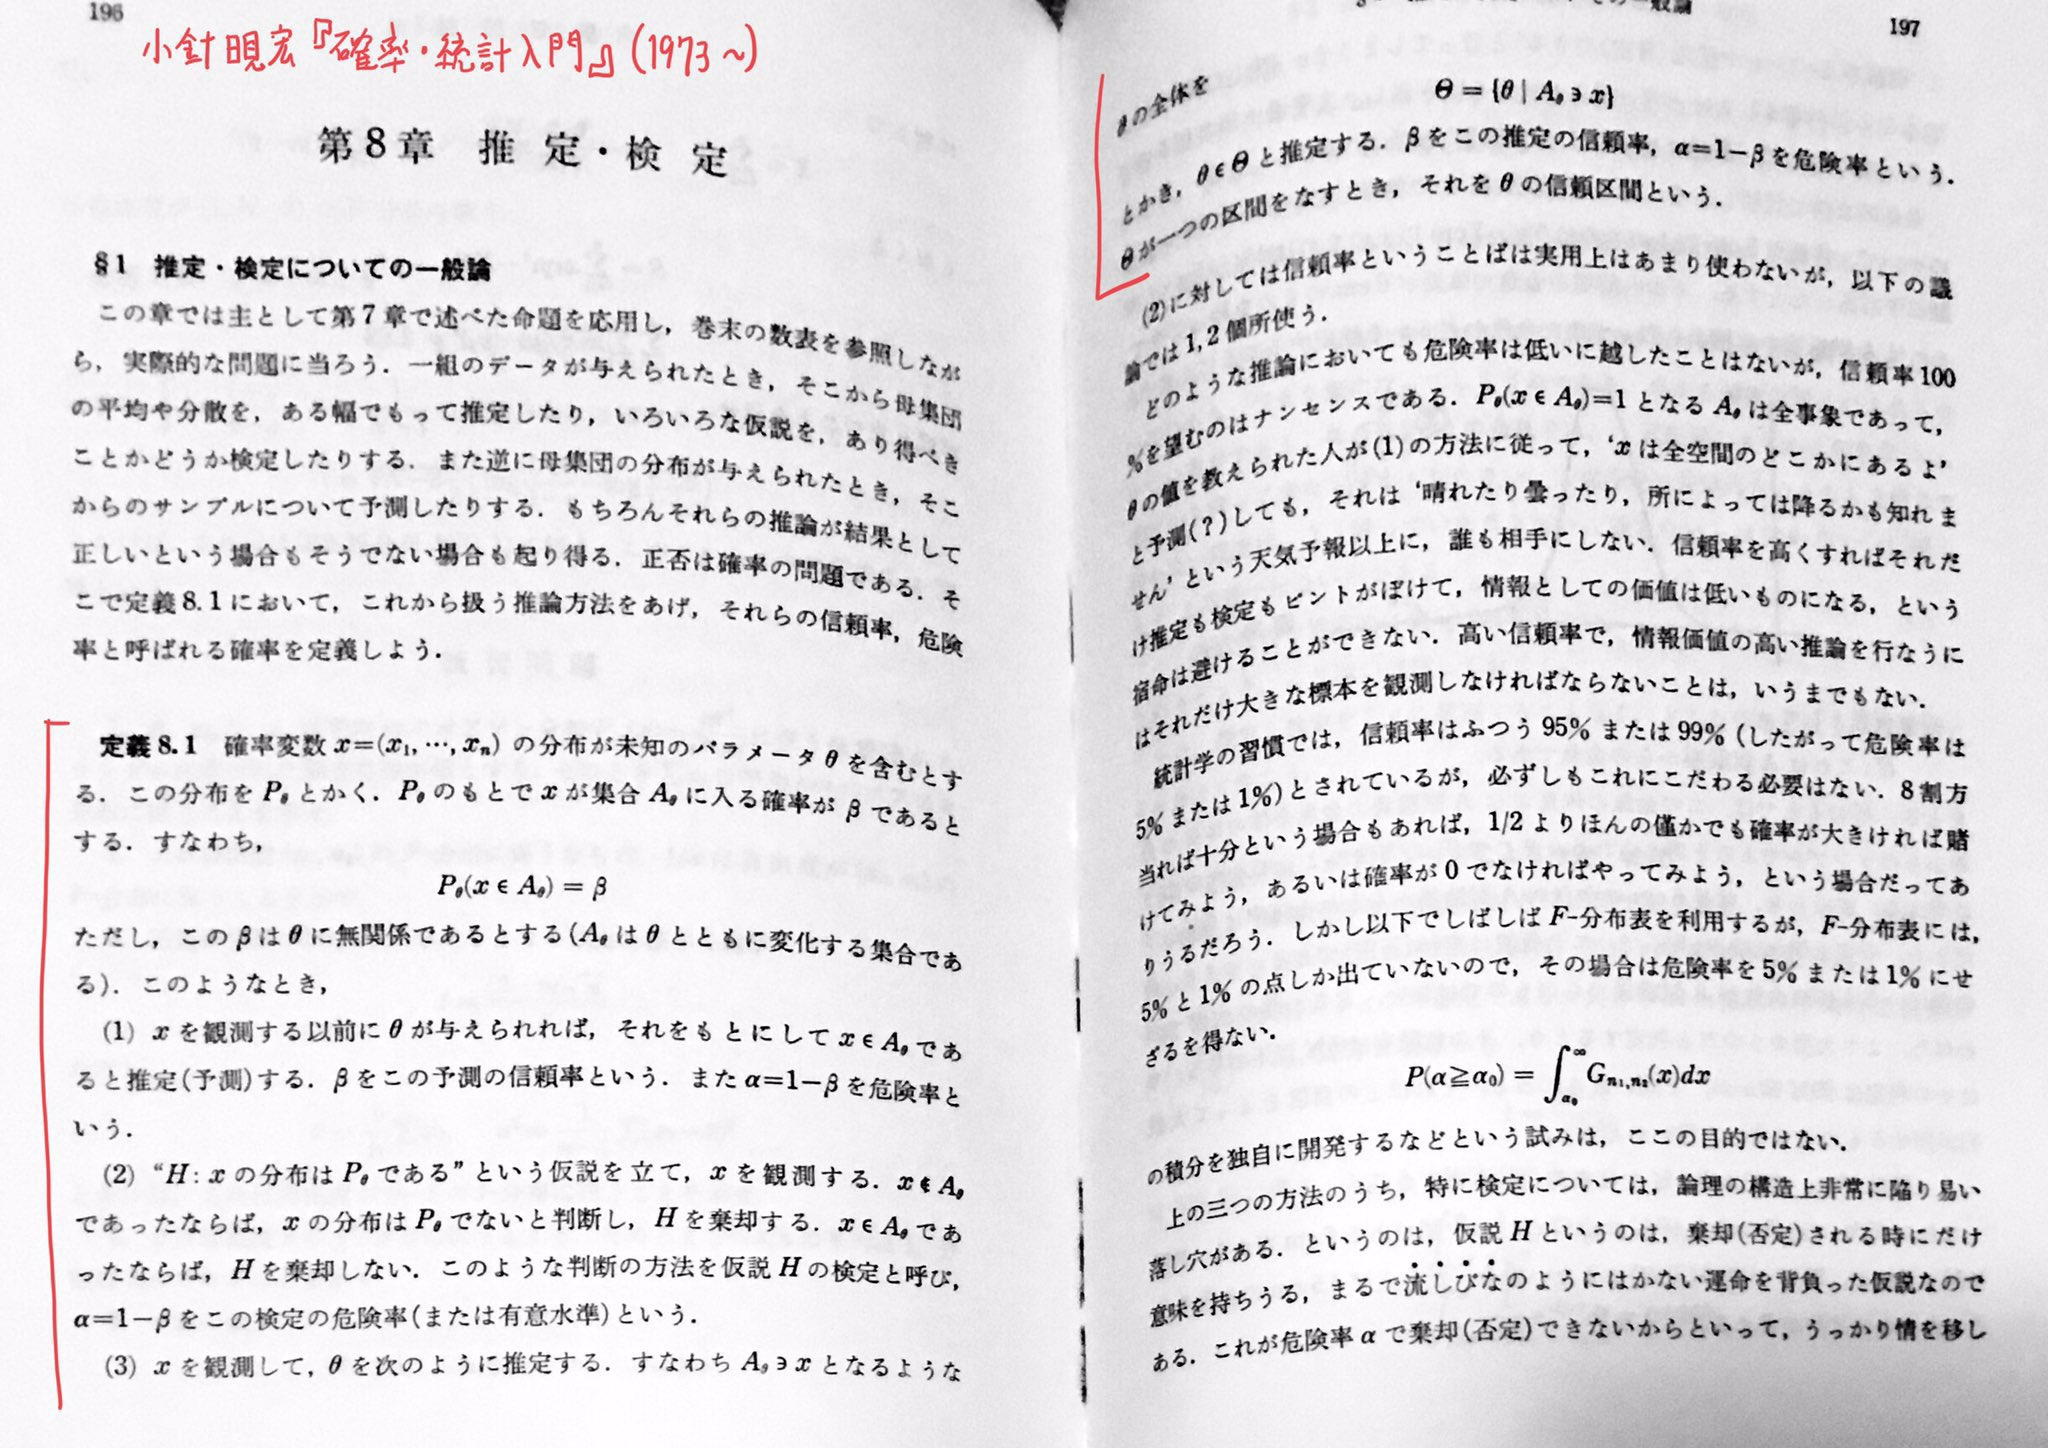 196
小針晛宏『確率・統計入門』(1973〜)
第8章 推定・検定
§1 推定・検定についての一般論
この章では主として第7章で述べた命題を応用し，巻末の数表を参照しなが
ら，実際的な問題に当ろう．一組のデータが与えられたとき，そこから母集団
の平均や分散を，ある幅でもって推定したり，いろいろな仮説を，あり得べき
ことかどうか検定したりする．また逆に母集団の分布が与えられたとき，そこ
からのサンプルについて予測したりする．もちろんそれらの推論が結果として
正しいという場合もそうでない場合も起り得る．正否は確率の問題である．そ
こで定義8.1において，これから扱う推論方法をあげ，それらの信頼率，危険
率と呼ばれる確率を定義しよう．
定義8.1 確率変数 x=(x₁, …, xₙ) の分布が未知のパラメータ θ を含むとす
る．この分布を P_θ とかく．P_θ のもとで x が集合 A_θ に入る確率が β であると
する．すなわち，
P_θ(x ∈ A_θ) = β
ただし，この β は θ に無関係であるとする(A_θ は θ とともに変化する集合であ
る)．このようなとき，
(1) x を観測する以前に θ が与えられれば，それをもとにして x ∈ A_θ であ
ると推定(予測)する．β をこの予測の信頼率という．また α=1−β を危険率と
いう．
(2) “H: x の分布は P_θ である” という仮説を立て，x を観測する．x ∉ A_θ
であったならば，x の分布は P_θ でないと判断し，H を棄却する．x ∈ A_θ であ
ったならば，H を棄却しない．このような判断の方法を仮説 H の検定と呼び，
α=1−β をこの検定の危険率(または有意水準)という．
(3) x を観測して，θ を次のように推定する．すなわち A_θ ∋ x となるような
197
θ の全体を
Θ = {θ | A_θ ∋ x}
とかき，θ ∈ Θ と推定する．β をこの推定の信頼率，α=1−β を危険率という．
Θ が一つの区間をなすとき，それを θ の信頼区間という．
(2)に対しては信頼率ということばは実用上はあまり使わないが，以下の議
論では 1, 2 個所使う．
どのような推論においても危険率は低いに越したことはないが，信頼率 100
%を望むのはナンセンスである．P_θ(x ∈ A_θ)=1 となる A_θ は全事象であって，
θ の値を教えられた人が(1)の方法に従って，‘x は全空間のどこかにあるよ’
と予測(？)しても，それは ‘晴れたり曇ったり，所によっては降るかも知れま
せん’ という天気予報以上に，誰も相手にしない．信頼率を高くすればそれだ
け推定も検定もピントがぼけて，情報としての価値は低いものになる，という
宿命は避けることができない．高い信頼率で，情報価値の高い推論を行なうに
はそれだけ大きな標本を観測しなければならないことは，いうまでもない．
統計学の習慣では，信頼率はふつう 95% または 99% (したがって危険率は
5% または 1%)とされているが，必ずしもこれにこだわる必要はない．8割方
当れば十分という場合もあれば，1/2 よりほんの僅かでも確率が大きければ賭
けてみよう，あるいは確率が 0 でなければやってみよう，という場合だってあ
りうるだろう．しかし以下でしばしば F-分布表を利用するが，F-分布表には，
5% と 1% の点しか出ていないので，その場合は危険率を 5% または 1% にせ
ざるを得ない．
P(α≧α₀) = ∫_{α₀}^{∞} G_{n₁,n₂}(x)dx
の積分を独自に開発するなどという試みは，ここの目的ではない．
上の三つの方法のうち，特に検定については，論理の構造上非常に陥り易い
落し穴がある．というのは，仮説 H というのは，棄却(否定)される時にだけ
意味を持ちうる，まるで流しびなのようにはかない運命を背負った仮説なので
ある．これが危険率 α で棄却(否定)できないからといって，うっかり情を移し